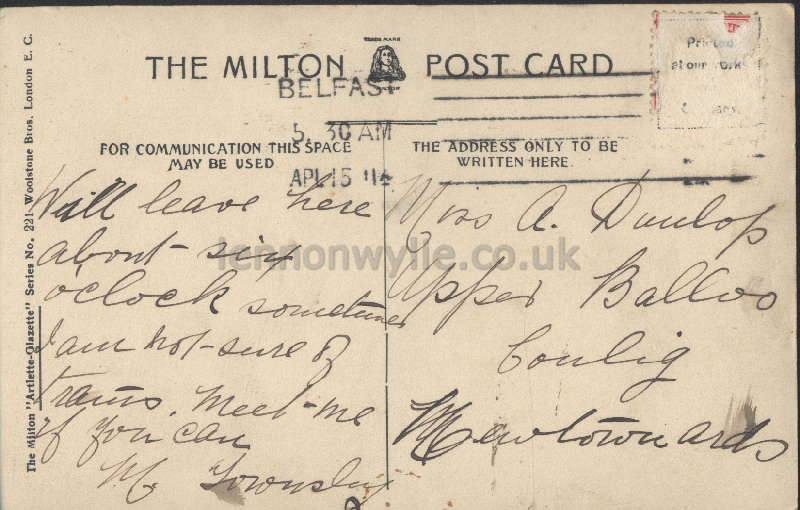 The Milton "Artlette-Glazette" Series No. 221. Woolstone Bros. London E. C.
TRADE MARK
THE MILTON POST CARD
BELFAST
5. 30 AM
AP 15
FOR COMMUNICATION THIS SPACE
MAY BE USED
THE ADDRESS ONLY TO BE
WRITTEN HERE.
Printed
at our work
Will leave here
about six
o'clock sometime
I am not sure of
trains. Meet me
if you can
M. Townsley
Miss A. Dunlop
Upper Balloo
Conlig
Newtownards
lennonwylie.co.uk